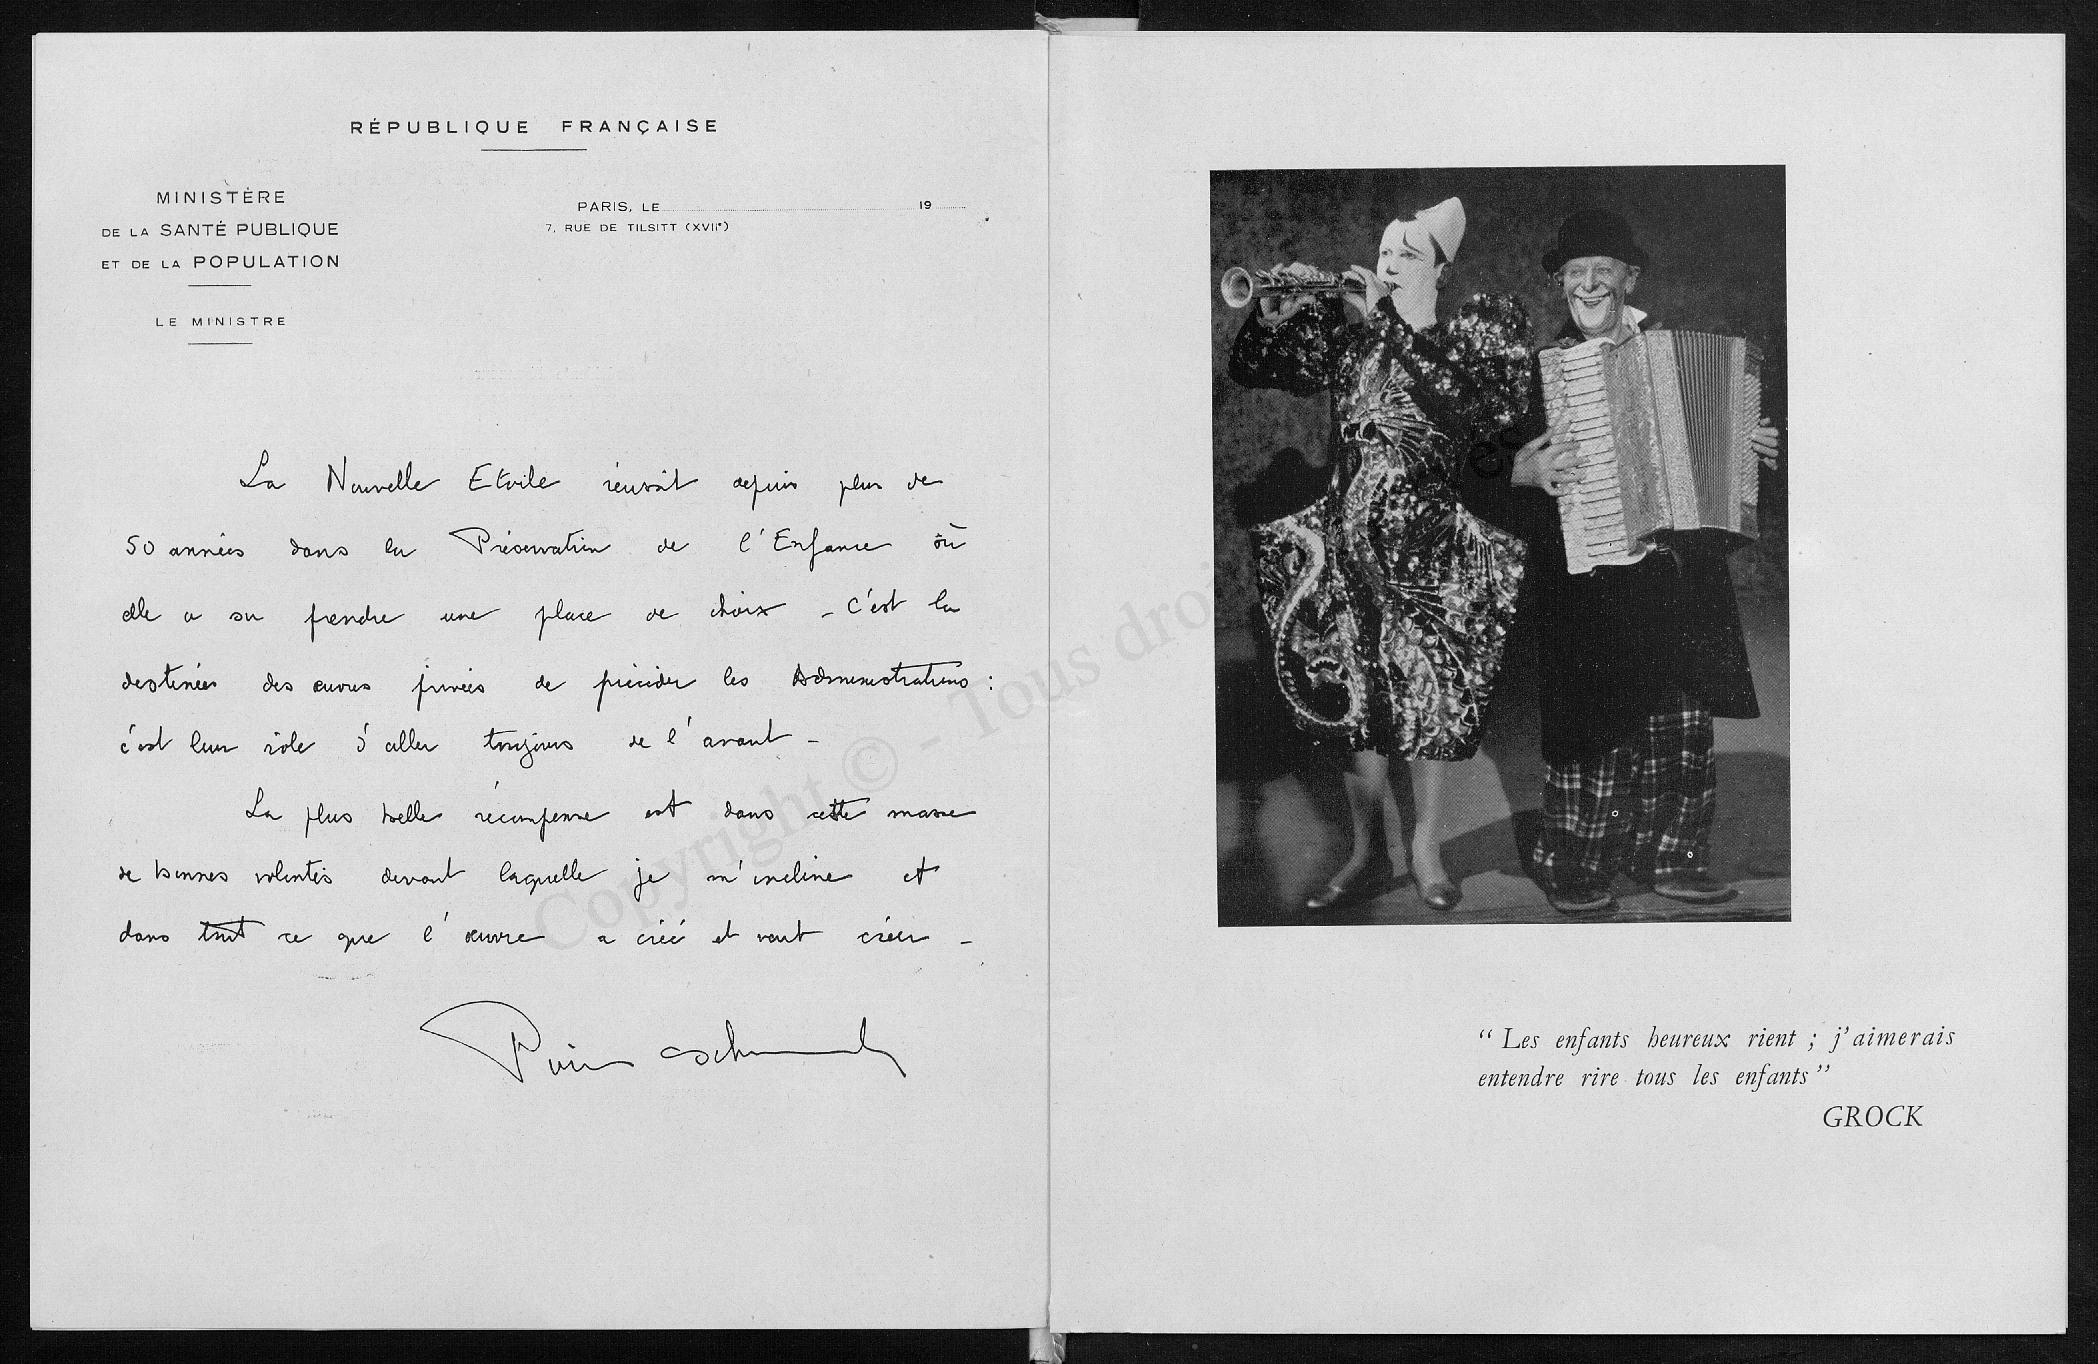 RÉPUBLIQUE FRANÇAISE
MINISTÈRE
DE LA SANTÉ PUBLIQUE
ET DE LA POPULATION
LE MINISTRE
PARIS, LE 19
7, RUE DE TILSITT (XVIIe)
La Nouvelle Etoile réussit depuis plus de
50 années dans la Préservation de l'Enfance où
elle a su prendre une place de choix - C'est la
destinée des œuvres privées de précéder les Administrations :
c'est leur rôle d'aller toujours de l'avant -
La plus belle récompense est dans cette masse
de bonnes volontés devant laquelle je m'incline et
dans tout ce que l'œuvre a créé et veut créer -
Copyright © - Tous droi
“ Les enfants heureux rient ; j'aimerais
entendre rire tous les enfants ”
GROCK